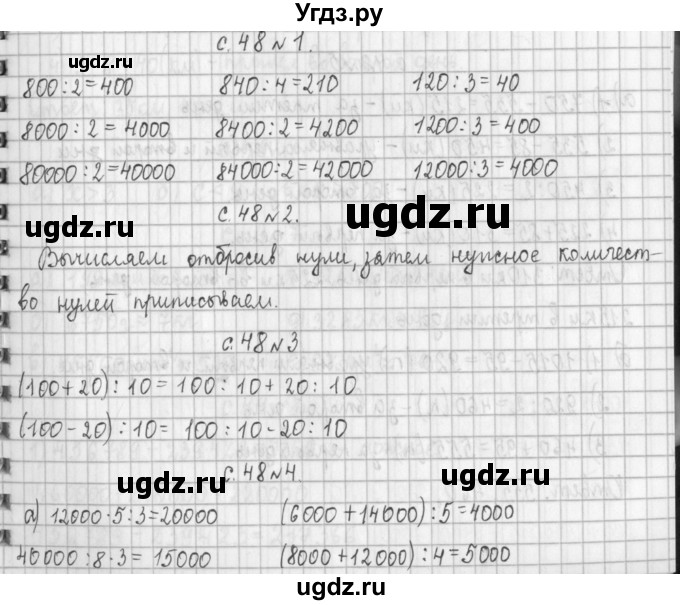 Угдз.ру
с. 48 №1.
800 : 2 = 400 840 : 4 = 210 120 : 3 = 40
8000 : 2 = 4000 8400 : 2 = 4200 1200 : 3 = 400
80000 : 2 = 40000 84000 : 2 = 42000 12000 : 3 = 4000
с. 48 №2.
Вычисляем отбросив нули, затем нужное количест-
во нулей приписываем.
с. 48 №3
(100 + 20) : 10 = 100 : 10 + 20 : 10
(100 - 20) : 10 = 100 : 10 - 20 : 10
с. 48 №4.
а) 12000 · 5 : 3 = 20000 (6000 + 14000) : 5 = 4000
40000 : 8 · 3 = 15000 (8000 + 12000) : 4 = 5000
ugdz.ru
ugdz.ru
ugdz.ru
ugdz.ru
ugdz.ru
ugdz.ru
ugdz.ru
ugdz.ru